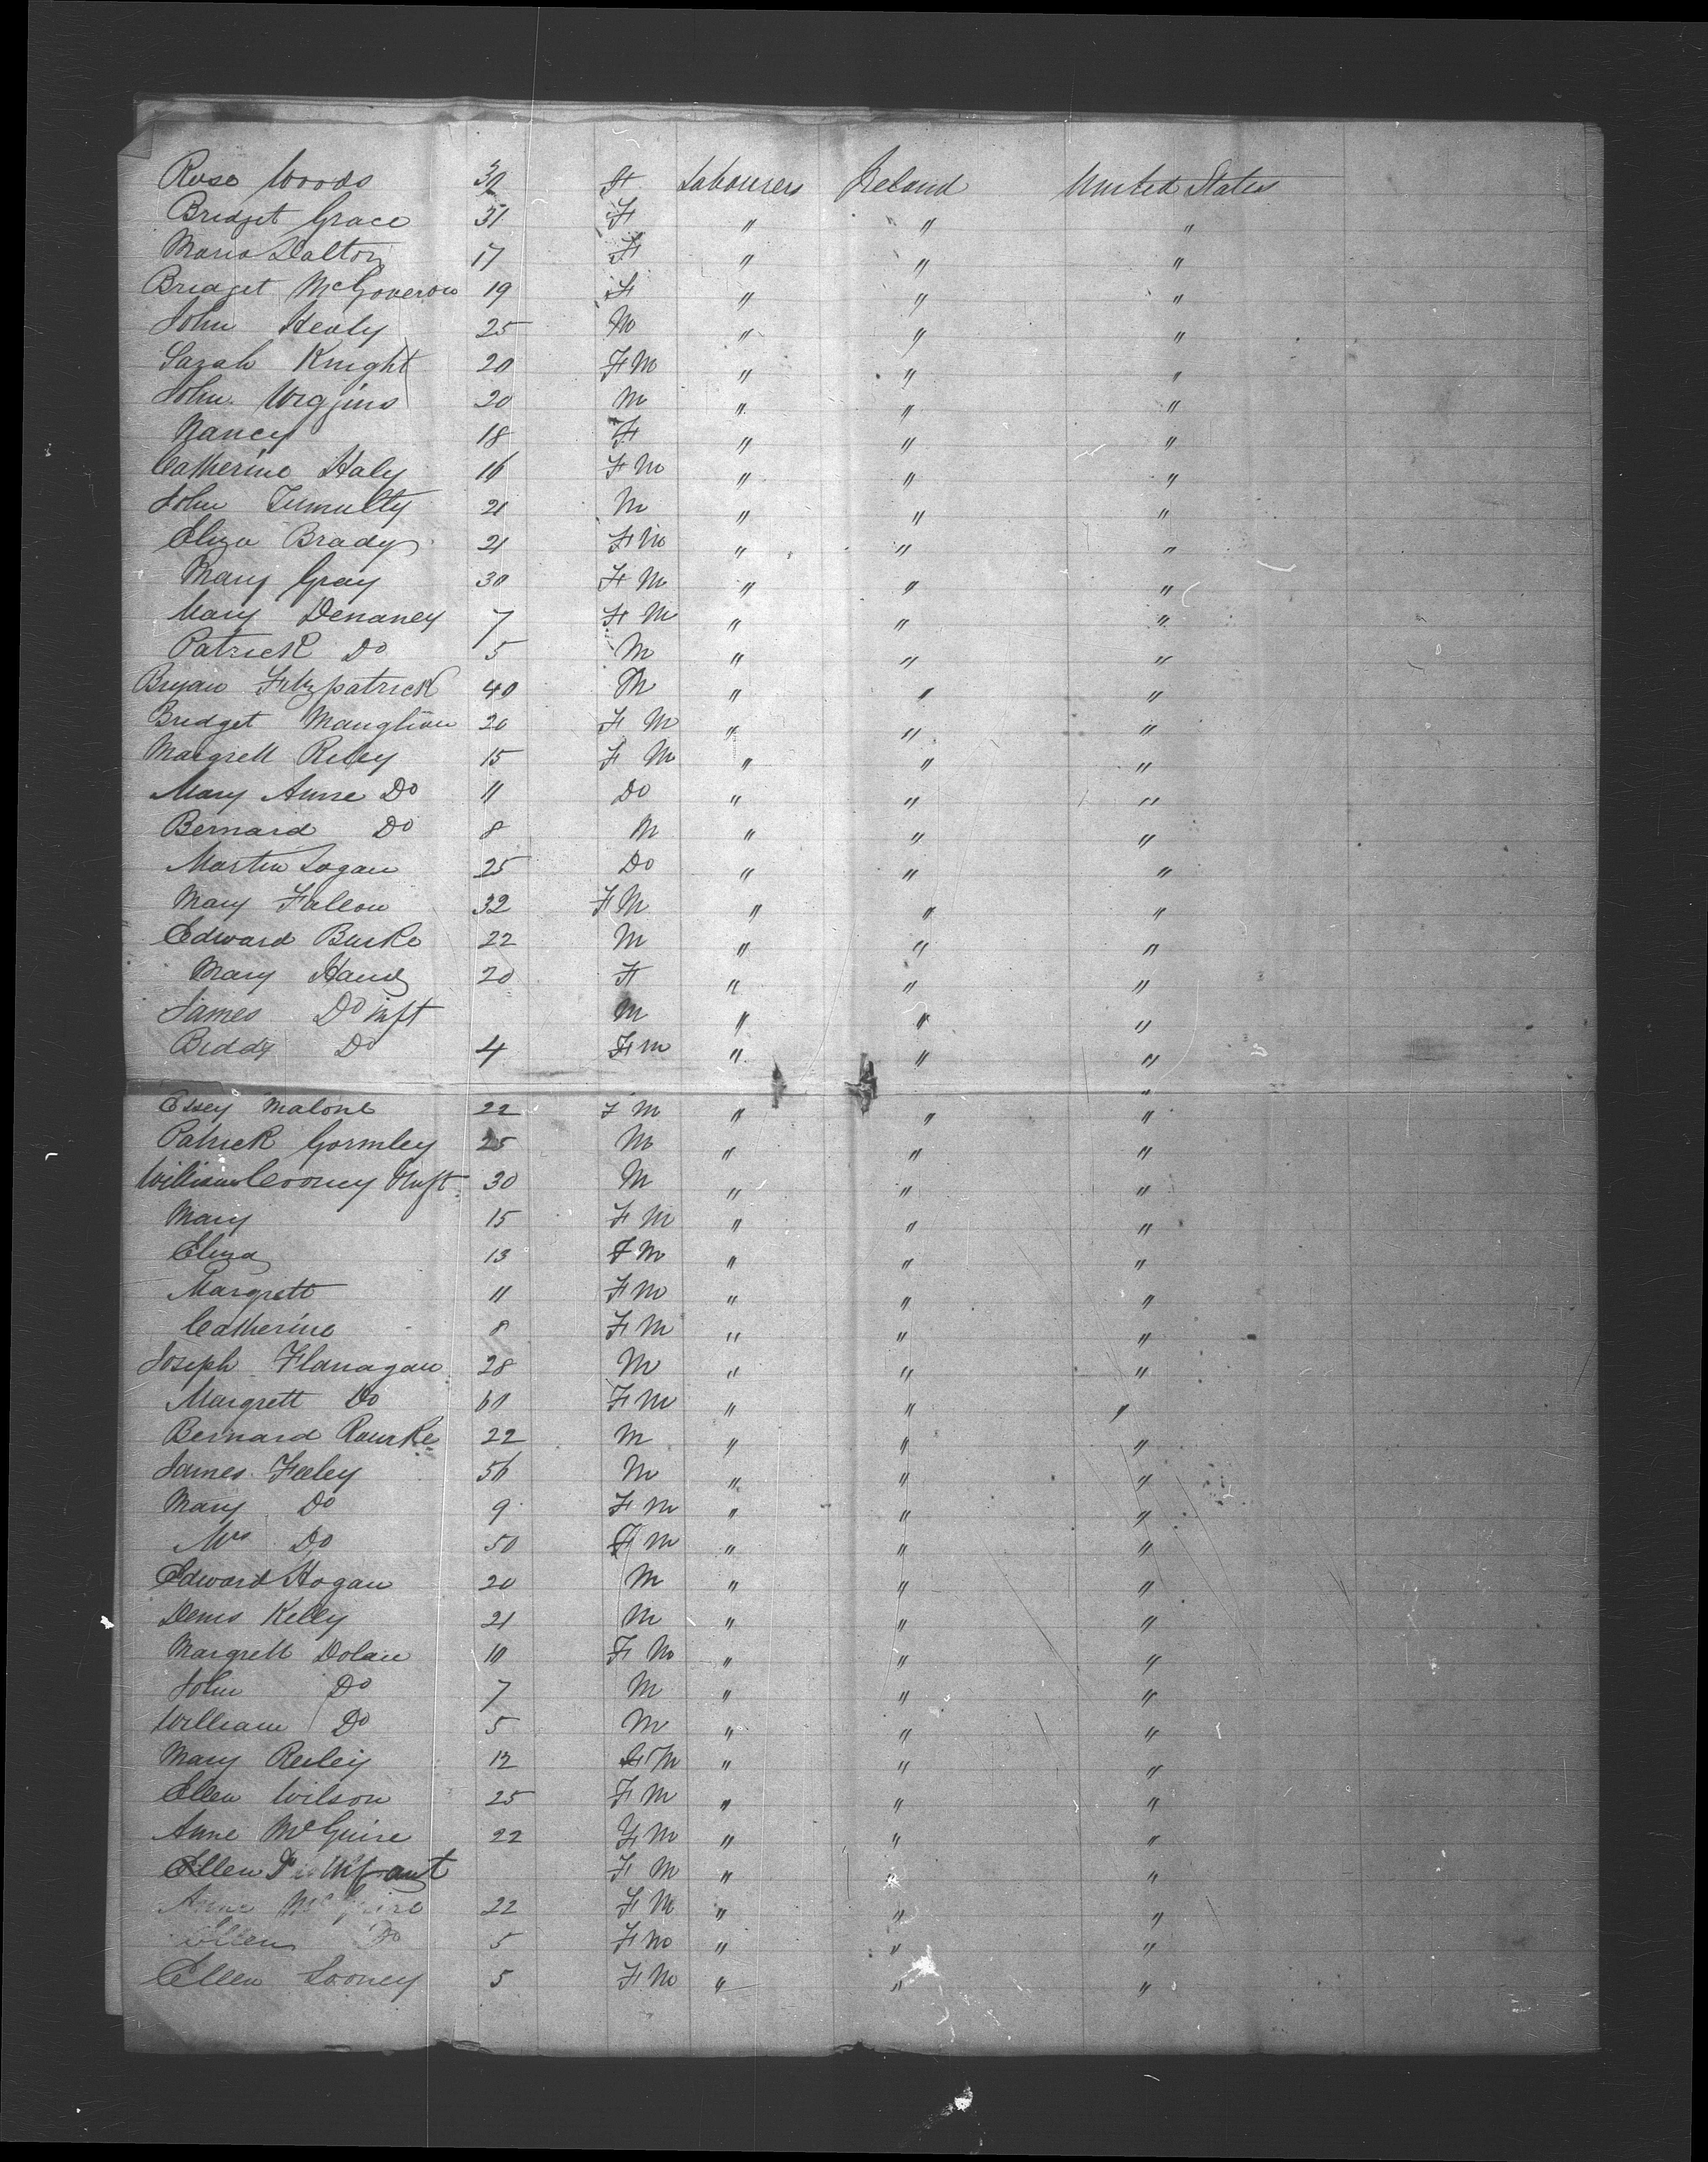 Rose Woods 30 F Labourers Ireland United States
Bridget Grace 31 F " " "
Maria Dalton 17 F " " "
Bridget McGoveron 19 F " " "
John Healy 25 M " " "
Sarah Knight 20 F M " " "
John Wiggins 20 M " " "
Nancy 18 F " " "
Catherine Haly 16 F M " " "
John Tumulty 21 M " " "
Eliza Brady 21 F M " " "
Mary Gray 30 F M " " "
Mary Denaney 7 F M " " "
Patrick Do 5 M " " "
Bryan Fitzpatrick 40 M " " "
Bridget Manglion 20 F M " " "
Margrett Riley 15 F M " " "
Mary Anne Do 11 Do " " "
Bernard Do 8 M " " "
Martin Logan 25 Do " " "
Mary Fallon 32 F M " " "
Edward Burke 22 M " " "
Mary Hand 20 F " " "
James Do inft M " " "
Biddy Do 4 F M " " "
"
Essey Malone 22 F M " " "
Patrick Gormley 25 M " " "
William Cooney 30 M " " "
Mary 15 F M " " "
Eliza 13 F M " " "
Margrett 11 F M " " "
Catherine 8 F M " " "
Joseph Flanagan 28 M " " "
Margrett Do 60 F M " " "
Bernard Rourke 22 M " " "
James Feeley 56 M " " "
Mary Do 9 F M " " "
Mrs Do 50 F M " " "
Edward Hogan 20 M " " "
Denis Kelly 21 M " " "
Margrett Dolan 10 F M " " "
John Do 7 M " " "
William Do 5 M " " "
Mary Reiley 12 F M " " "
Ellen Wilson 25 F M " " "
Anne McGuire 22 F M " " "
Ellen Infant F M " " "
Anne McGuire 22 F M " " "
Ellen Do 5 F M " " "
Ellen Looney 5 F M " " "